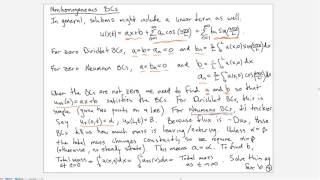 Nonhomogeneous BCs
In general, solutions might include a linear term as well.
u(x,t) = ax+b + Σ aₙ cos(nπx/L) + Σ bₙ sin(nπx/L)
For zero Dirichlet BCs, a=b=aₙ=0 and bₙ = 2/L ∫ u(x,0) sin(nπx/L) dx
For zero Neumann BCs, a=bₙ=0 and b = 1/L ∫ u(x,0) dx
aₙ = 2/L ∫ u(x,0) cos(nπx/L) dx
When the BCs are not zero, we need to find a and b so that
satisfies the BCs. For Dirichlet BCs, this is
simple (given two points on a line). For Neumann BCs, it's trickier
Say uₓ(0,t)=α, uₓ(L,t)=β. Because flux is -Duₓ, these
BCs tell us how much mass is leaving/entering. Unless α=β
the total mass changes constantly so we require α=β
(otherwise, no steady state). This means a=α. To find b,
Total mass at t=0 = ∫ u(x,0)dx = ∫ dx = Total mass as t→∞ Solve this eq for b